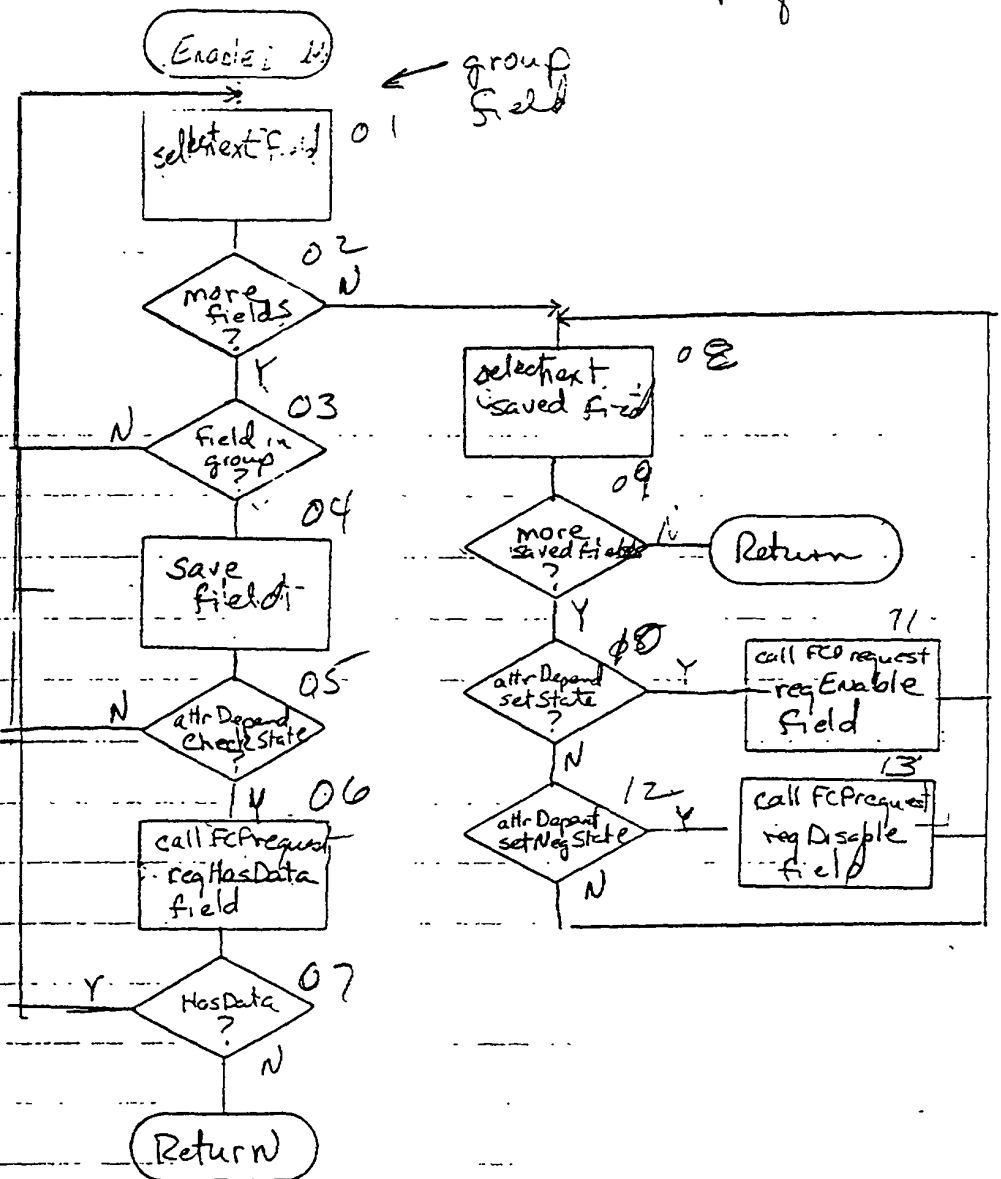 group
field
01
select next field
02
more
fields
?
N
Y
03
field in
group
?
N
04
save
field
05
attrDepend
CheckState
?
N
Y
06
call FCPrequest
reqHasData
field
07
HasData
?
Y
N
Return
08
select next
saved field
09
more
saved fields
?
N
Return
Y
10
attrDepend
setState
?
Y
11
call FCPrequest
reqEnable
field
N
12
attrDepend
setNegState
Y
13
call FCPrequest
reqDisable
field
N